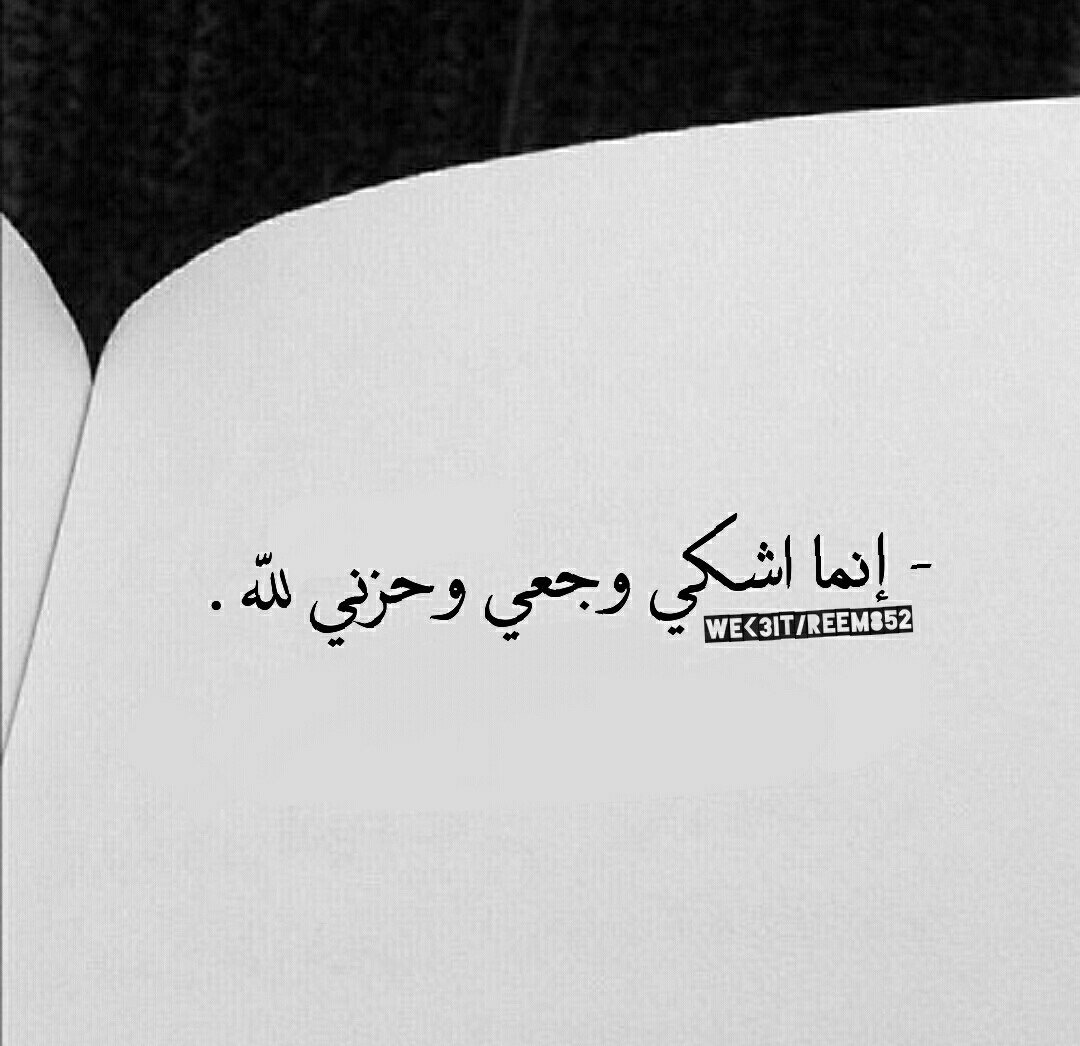 - إنما اشكي وجعي وحزني لله .
WE<3IT/REEM852